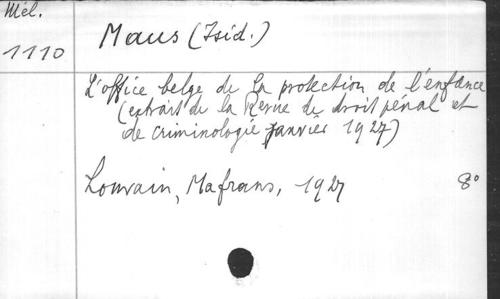 Mél.
1110
Maus (Isid.)
L'office belge de la protection de l'enfance
(extrait de la Revue de droit pénal et
de criminologie janvier 1927)
Louvain, Mafrans, 1927 8°